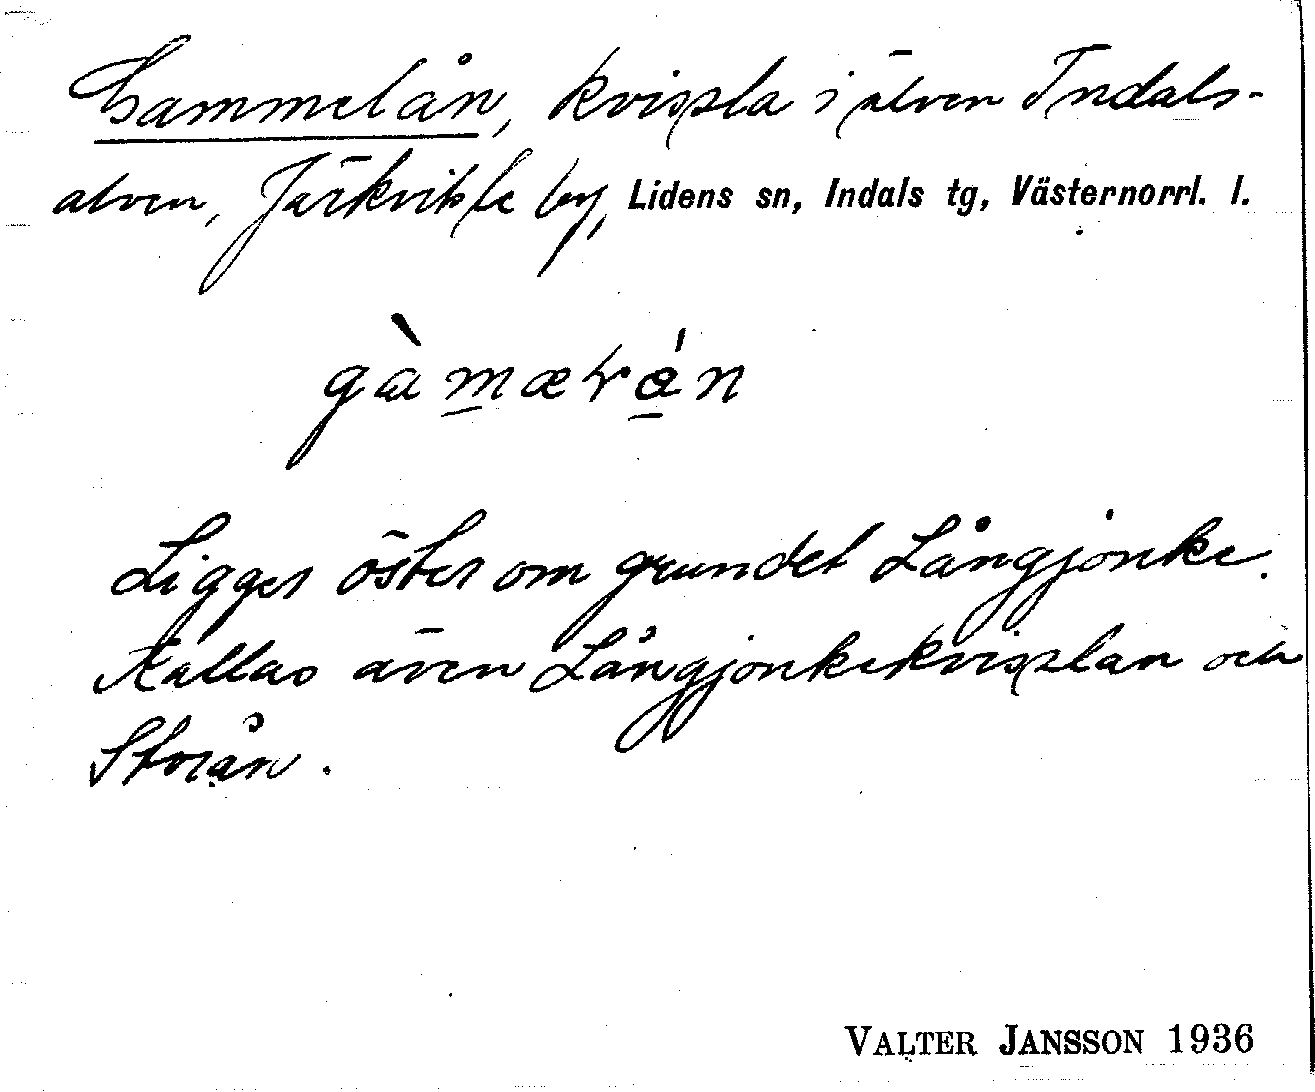 Gammelån, kvissla i älven Indals-
älven, Järkvitsle by, Lidens sn, Indals tg, Västernorrl. l.
Ligger öster om grundet Långjonke.
Kallas även Långjonkekvisslan och
Storån.
VALTER JANSSON 1936